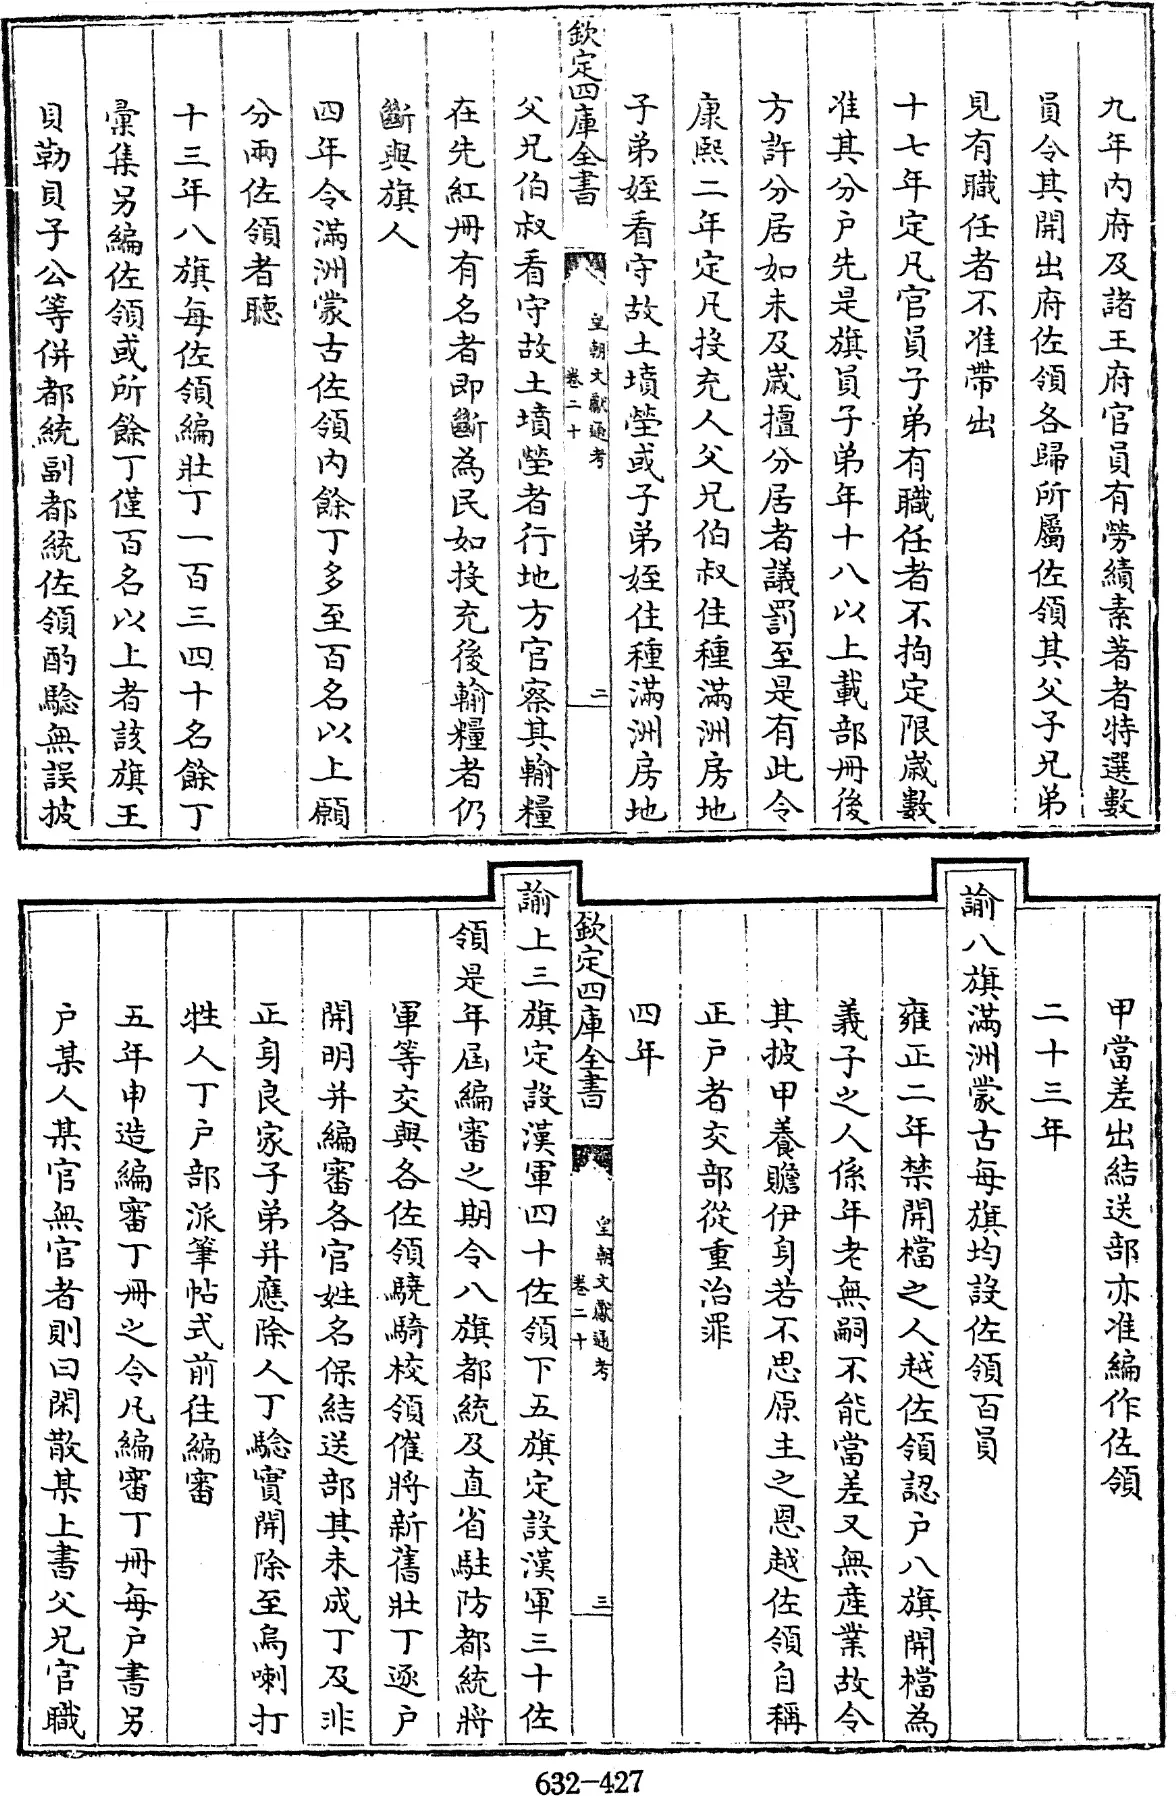 九年内府及諸王府官員有勞績素著者特選數
員令其開出府佐領各歸所屬佐領其父子兄弟
見有職任者不准帶出
十七年定凡官員子弟有職任者不拘定限歲數
准其分户先是旗員子弟年十八以上載部冊後
方許分居如未及歲擅分居者議罰至是有此令
康熙二年定凡投充人父兄伯叔住種滿洲房地
子弟姪看守故土墳塋或子弟姪住種滿洲房地
欽定四庫全書
皇朝文獻通考
卷二十
二
父兄伯叔看守故土墳塋者行地方官察其輸糧
在先紅冊有名者即斷為民如投充後輸糧者仍
斷與旗人
四年令滿洲蒙古佐領内餘丁多至百名以上願
分兩佐領者聽
十三年八旗每佐領編壯丁一百三四十名餘丁
彙集另編佐領或所餘丁僅百名以上者該旗王
貝勒貝子公等併都統副都統佐領酌驗無誤披
甲當差出結送部亦准編作佐領
二十三年
諭八旗滿洲蒙古每旗均設佐領百員
雍正二年禁開檔之人越佐領認户八旗開檔為
義子之人係年老無嗣不能當差又無産業故令
其披甲養贍伊身若不思原主之恩越佐領自稱
正户者交部從重治罪
四年
欽定四庫全書
皇朝文獻通考
卷二十
三
諭上三旗定設漢軍四十佐領下五旗定設漢軍三十佐
領是年屆編審之期令八旗都統及直省駐防都統將
軍等交與各佐領驍騎校領催將新舊壯丁逐户
開明并編審各官姓名保結送部其未成丁及非
正身良家子弟并應除人丁驗實開除至烏喇打
牲人丁户部派筆帖式前往編審
五年申造編審丁冊之令凡編審丁冊每户書另
户某人某官無官者則曰閑散某上書父兄官職
632-427